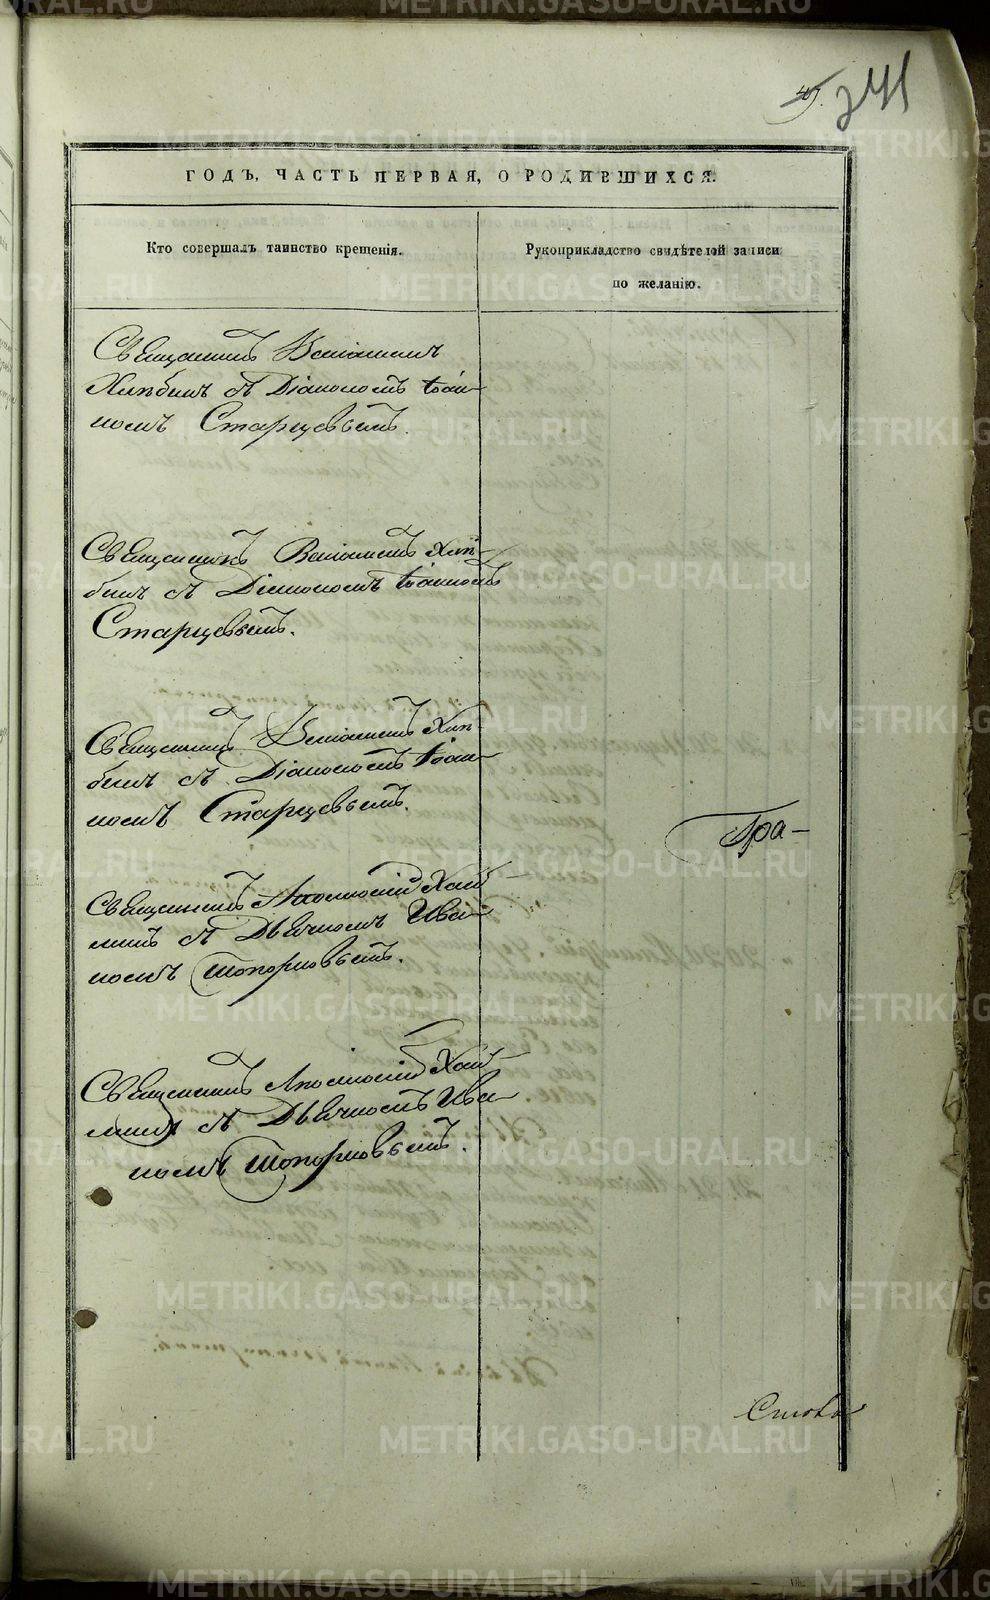 241
ГОДЪ, ЧАСТЬ ПЕРВАЯ, О РОДИВШИХСЯ.
Кто совершалъ таинство крещенія.
Рукоприкладство свидѣтелей записи
по желанію.
Священникъ Веніаминъ
Хлѣбинъ съ Діакономъ Іоан-
номъ Старцевымъ.
Священникъ Веніаминъ Хлѣ-
бинъ съ Діакономъ Іоанномъ
Старцевымъ.
Священникъ Веніаминъ Хлѣ-
бинъ съ Діакономъ Іоан-
номъ Старцевымъ.
Гра-
Священникъ
съ Дьячкомъ Ива-
номъ Топорковымъ.
Священникъ
съ Дьячкомъ Ива-
номъ Топорковымъ.
METRIKI.GASO-URAL.RU